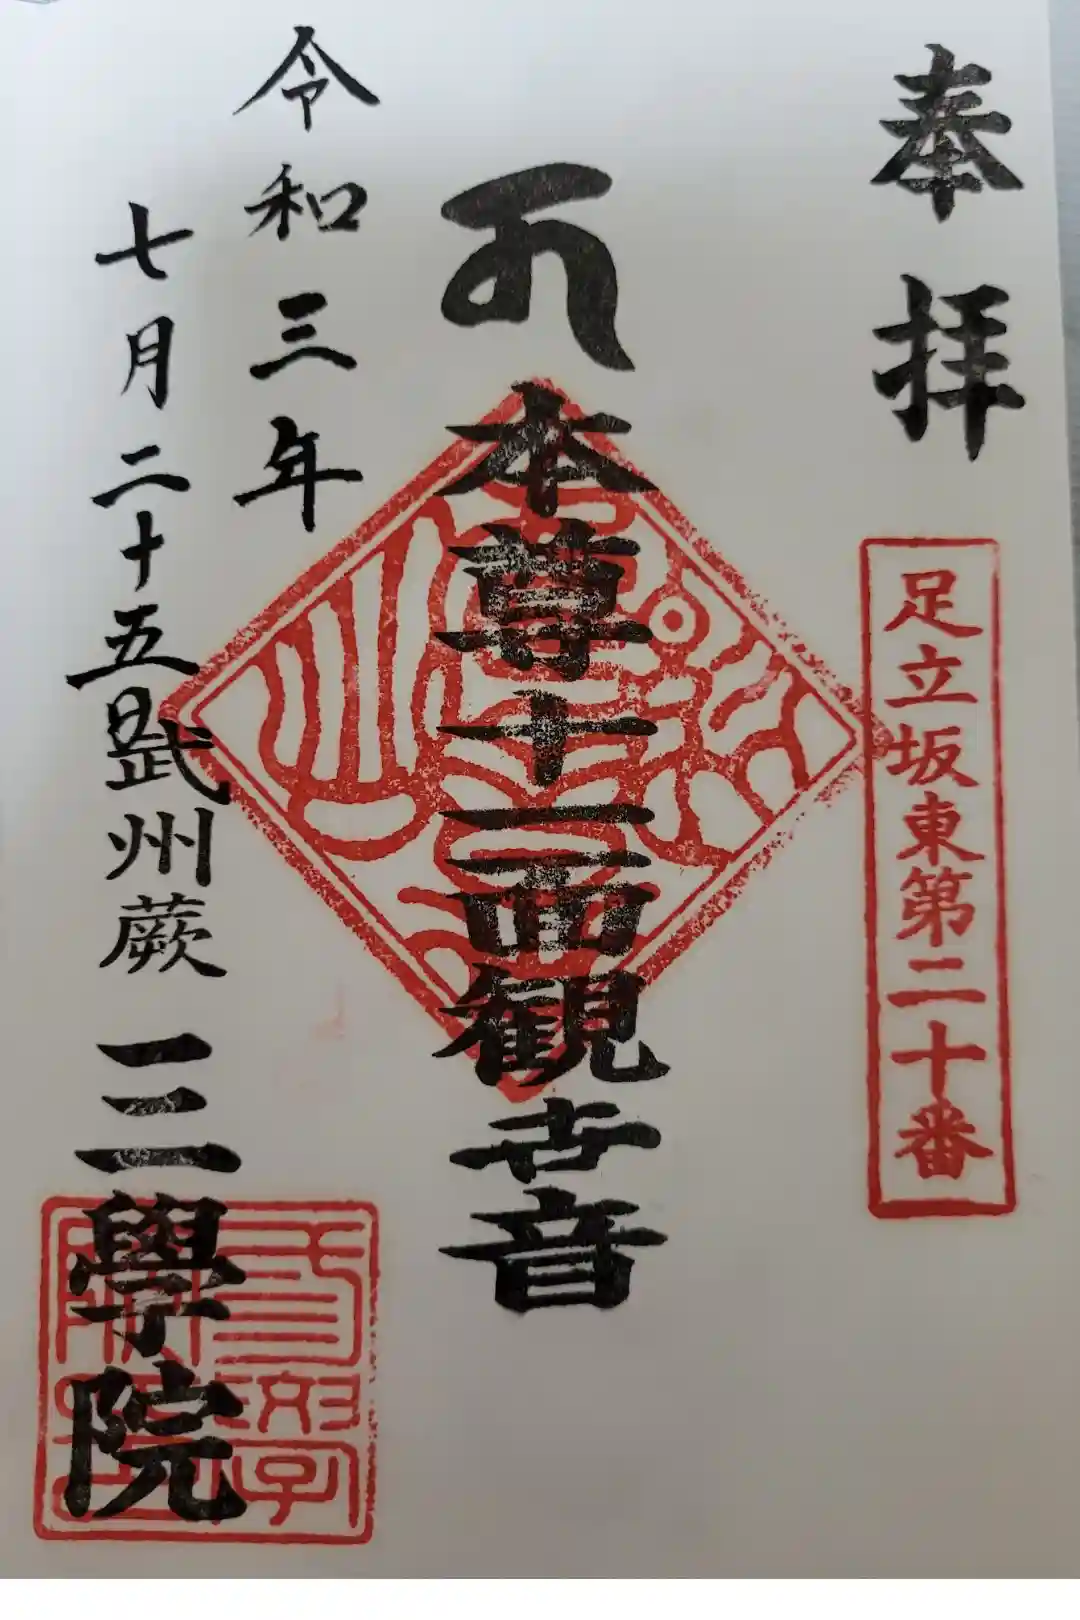 奉拝
足立坂東第二十番
本尊十一面観世音
令和三年
七月二十五日
武州蕨
三學院